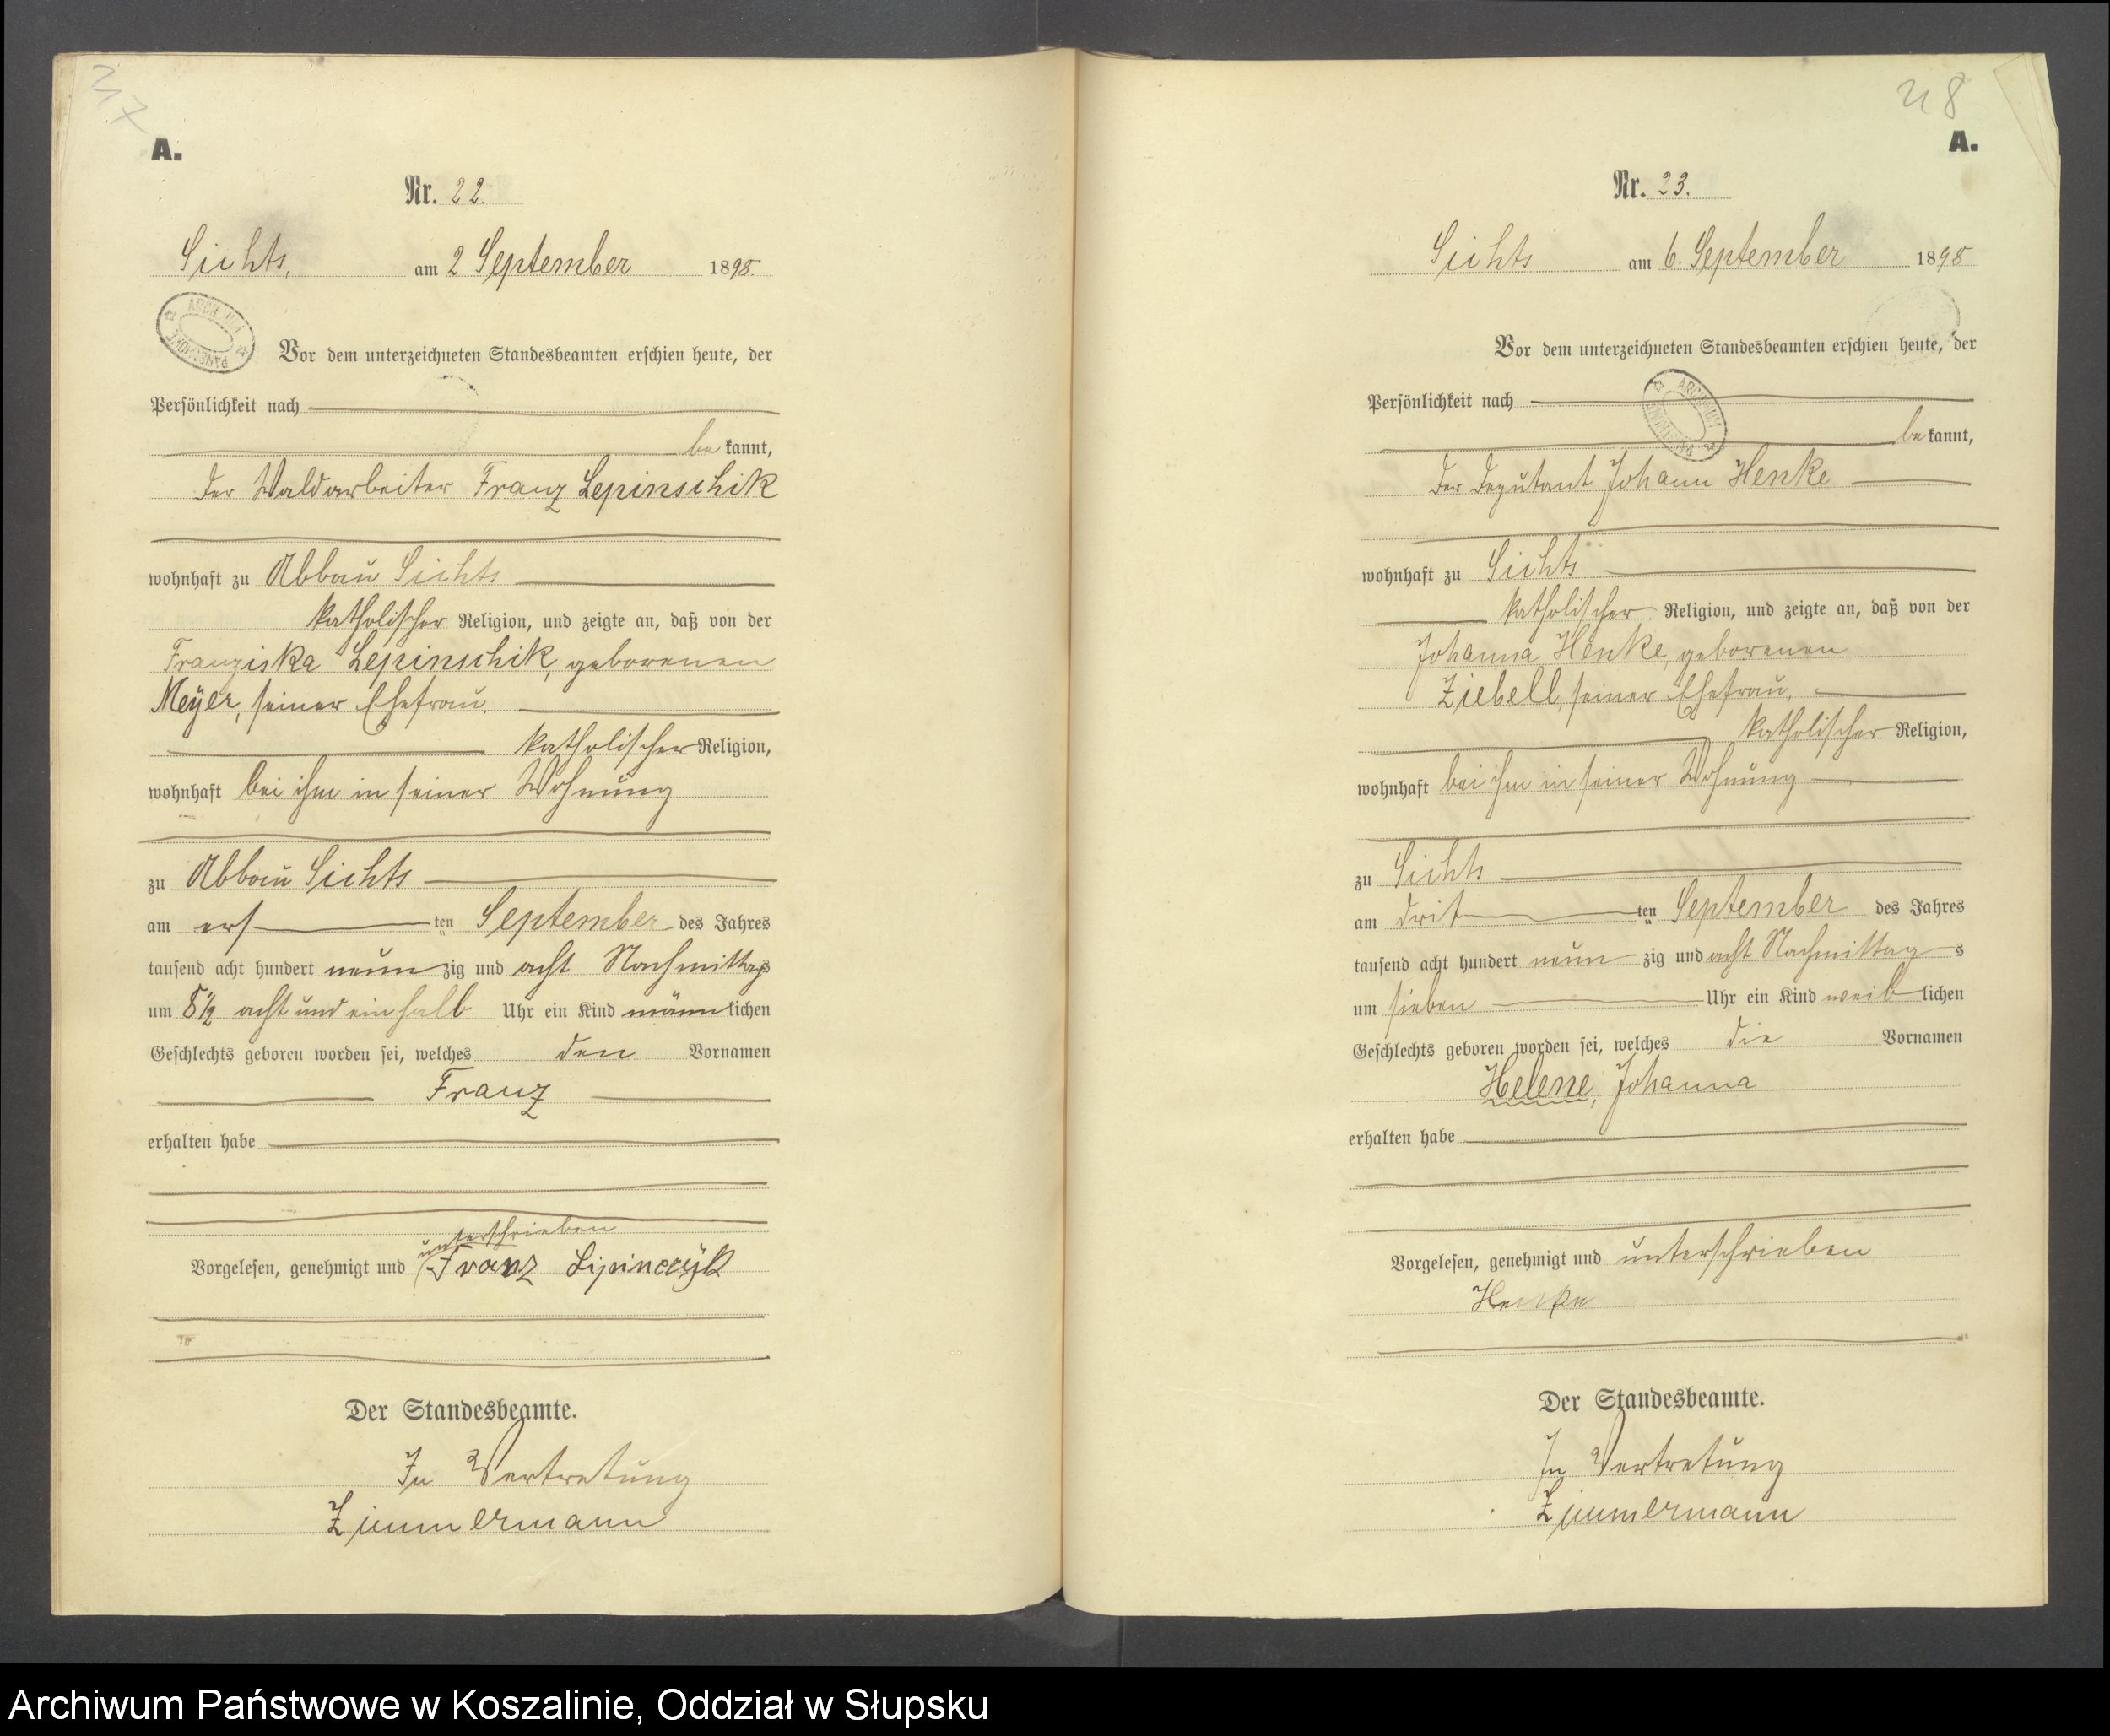 27
A.
Nr. 22.
Sichts, am 2 September 1898
ARCHIWUM PAŃSTWOWE
Vor dem unterzeichneten Standesbeamten erschien heute, der
Persönlichkeit nach
bekannt,
der Waldarbeiter Franz Lepinschik
wohnhaft zu Abbau Sichts
katholischer Religion, und zeigte an, daß von der
Franziska Lepinschik, geborenen
Meÿer, seiner Ehefrau,
katholischer Religion,
wohnhaft bei ihm in seiner Wohnung
zu Abbau Sichts
am ers ten September des Jahres
tausend acht hundert neun zig und acht Nachmittags
um 8½ acht und ein halb Uhr ein Kind männlichen
Geschlechts geboren worden sei, welches den Vornamen
Franz
erhalten habe
unterschrieben
Vorgelesen, genehmigt und Franz Lipinczÿk
Der Standesbeamte.
In Vertretung
Zimmermann
28
A.
Nr. 23.
Sichts am 6. September 1898
Vor dem unterzeichneten Standesbeamten erschien heute, der
Persönlichkeit nach
ARCHIWUM PAŃSTWOWE
bekannt,
der Deputant Johann Henke
wohnhaft zu Sichts
katholischer Religion, und zeigte an, daß von der
Johanna Henke, geborenen
Ziebell, seiner Ehefrau,
katholischer Religion,
wohnhaft bei ihm in seiner Wohnung
zu Sichts
am drit ten September des Jahres
tausend acht hundert neun zig und acht Nachmittag s
um sieben Uhr ein Kind weiblichen
Geschlechts geboren worden sei, welches die Vornamen
Helene, Johanna
erhalten habe
Vorgelesen, genehmigt und unterschrieben
Henke
Der Standesbeamte.
In Vertretung
Zimmermann
Archiwum Państwowe w Koszalinie, Oddział w Słupsku